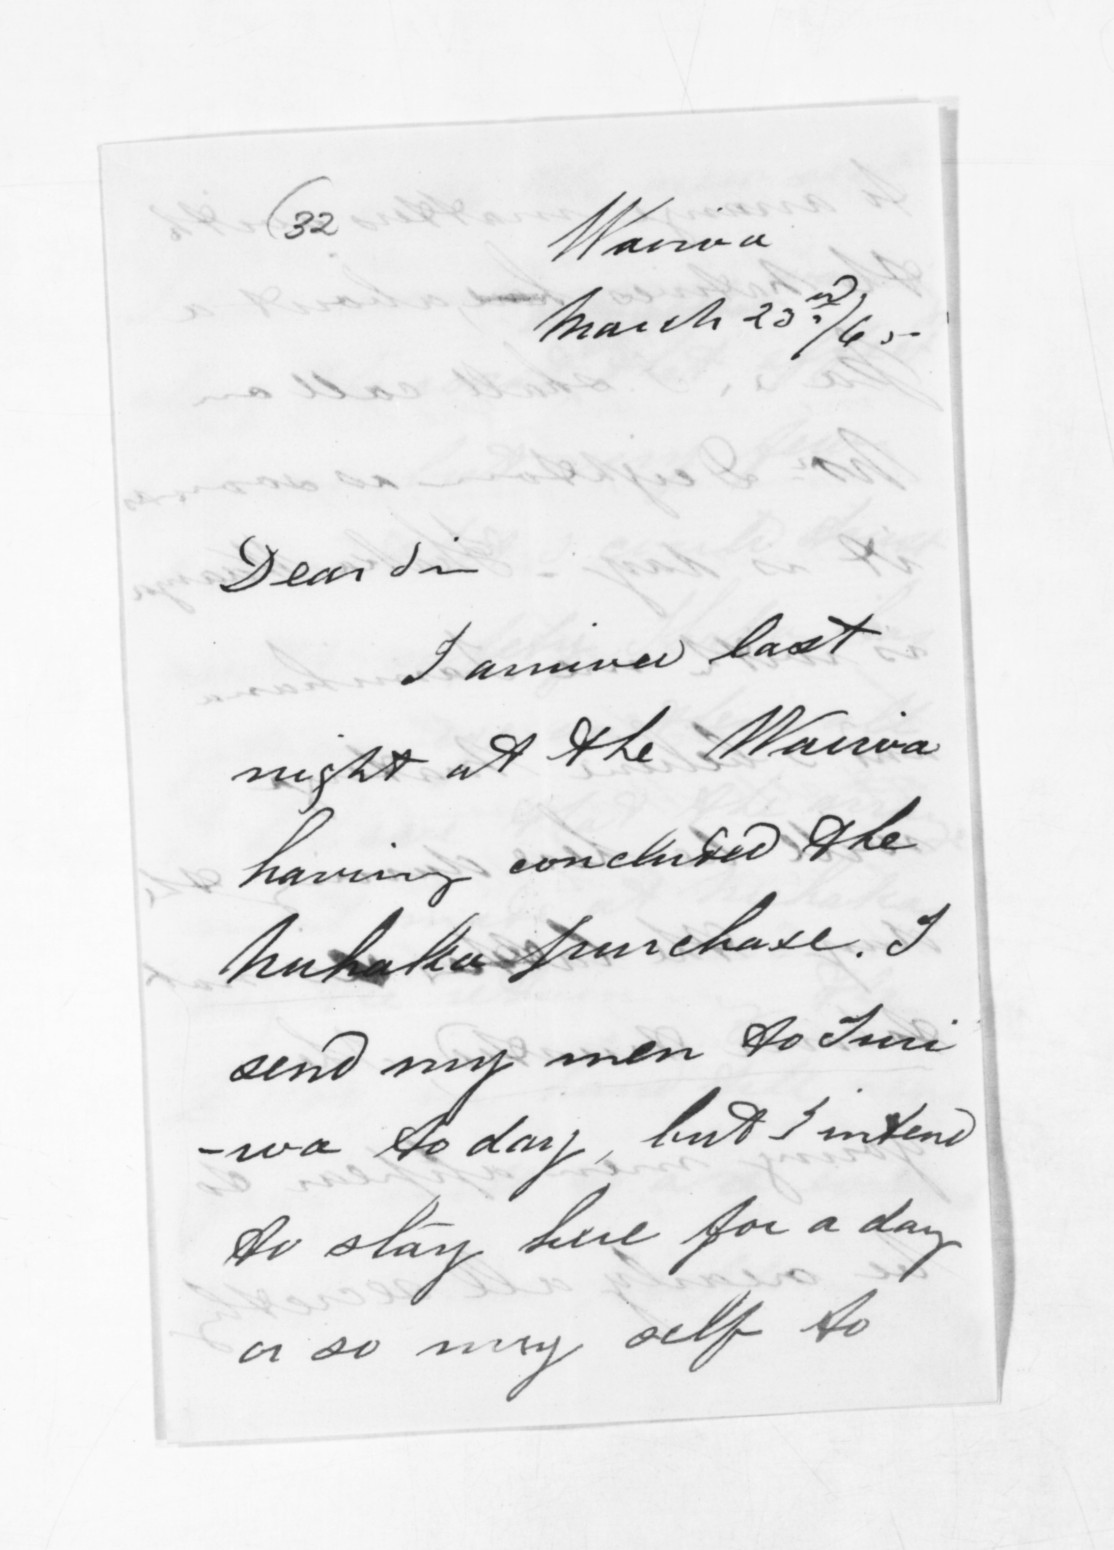 (32
Wairoa
March 23rd/65
Dear Sir
I arrived last
night at the Wairoa
having concluded the
Nuhaka purchase. I
send my men to Turi
-roa to day, but I intend
to stay here for a day
or so my self to